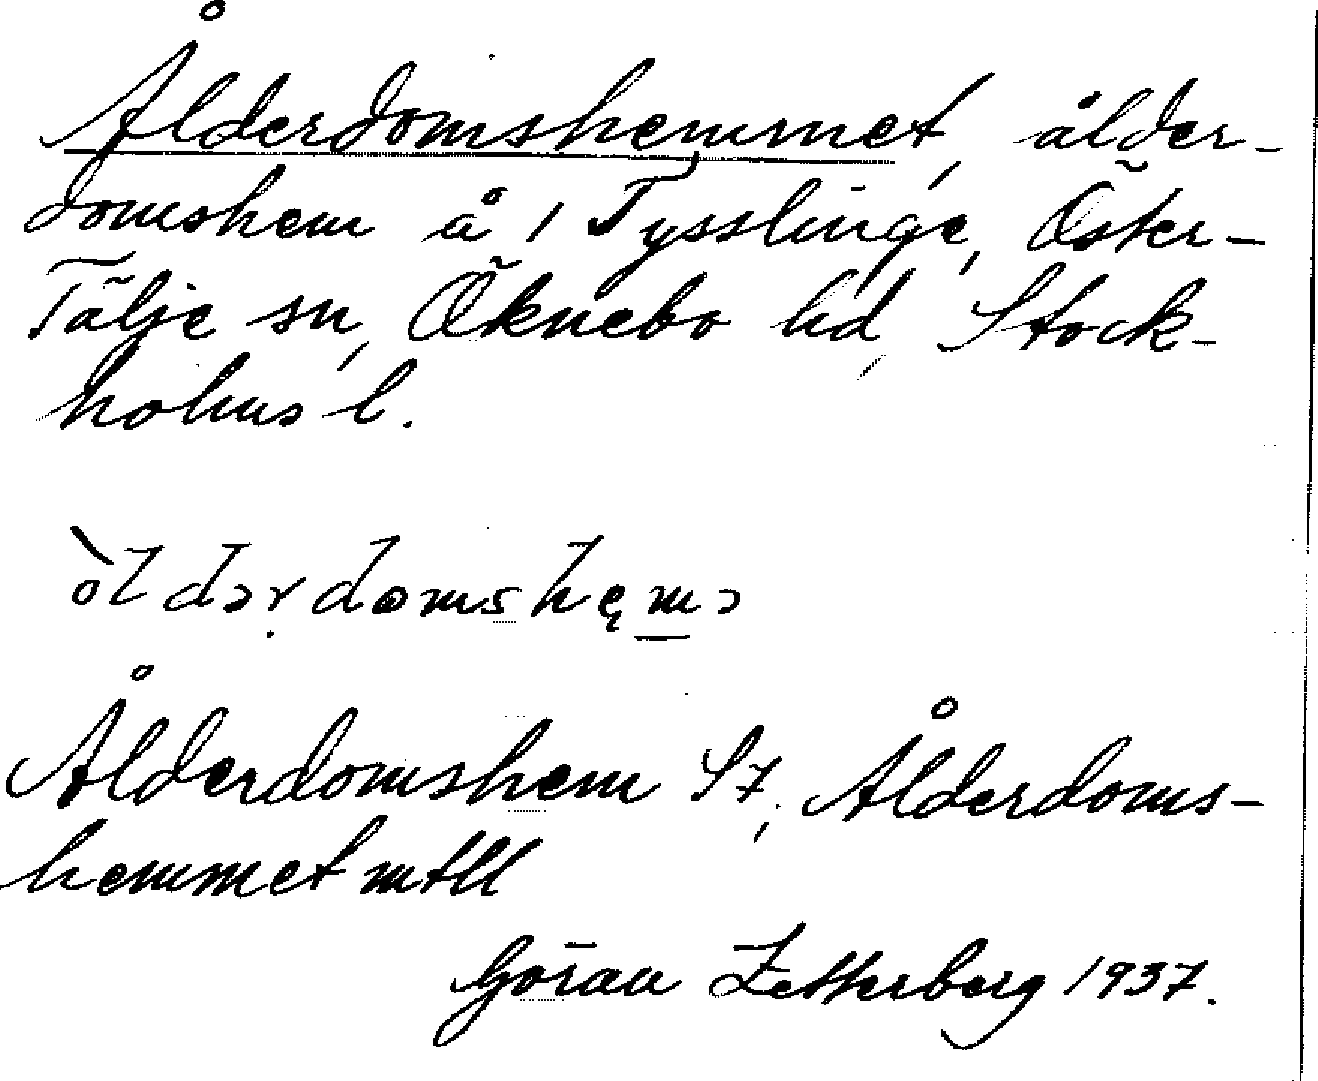 Ålderdomshemmet, ålder-
domshem å 1 Tysslinge, Öster-
Tälje sn, Öknebo hd, Stock-
holms l.
òldərdomshęmə
Ålderdomshem S7, Ålderdoms-
hemmet mtll
Göran Zetterberg 1937.